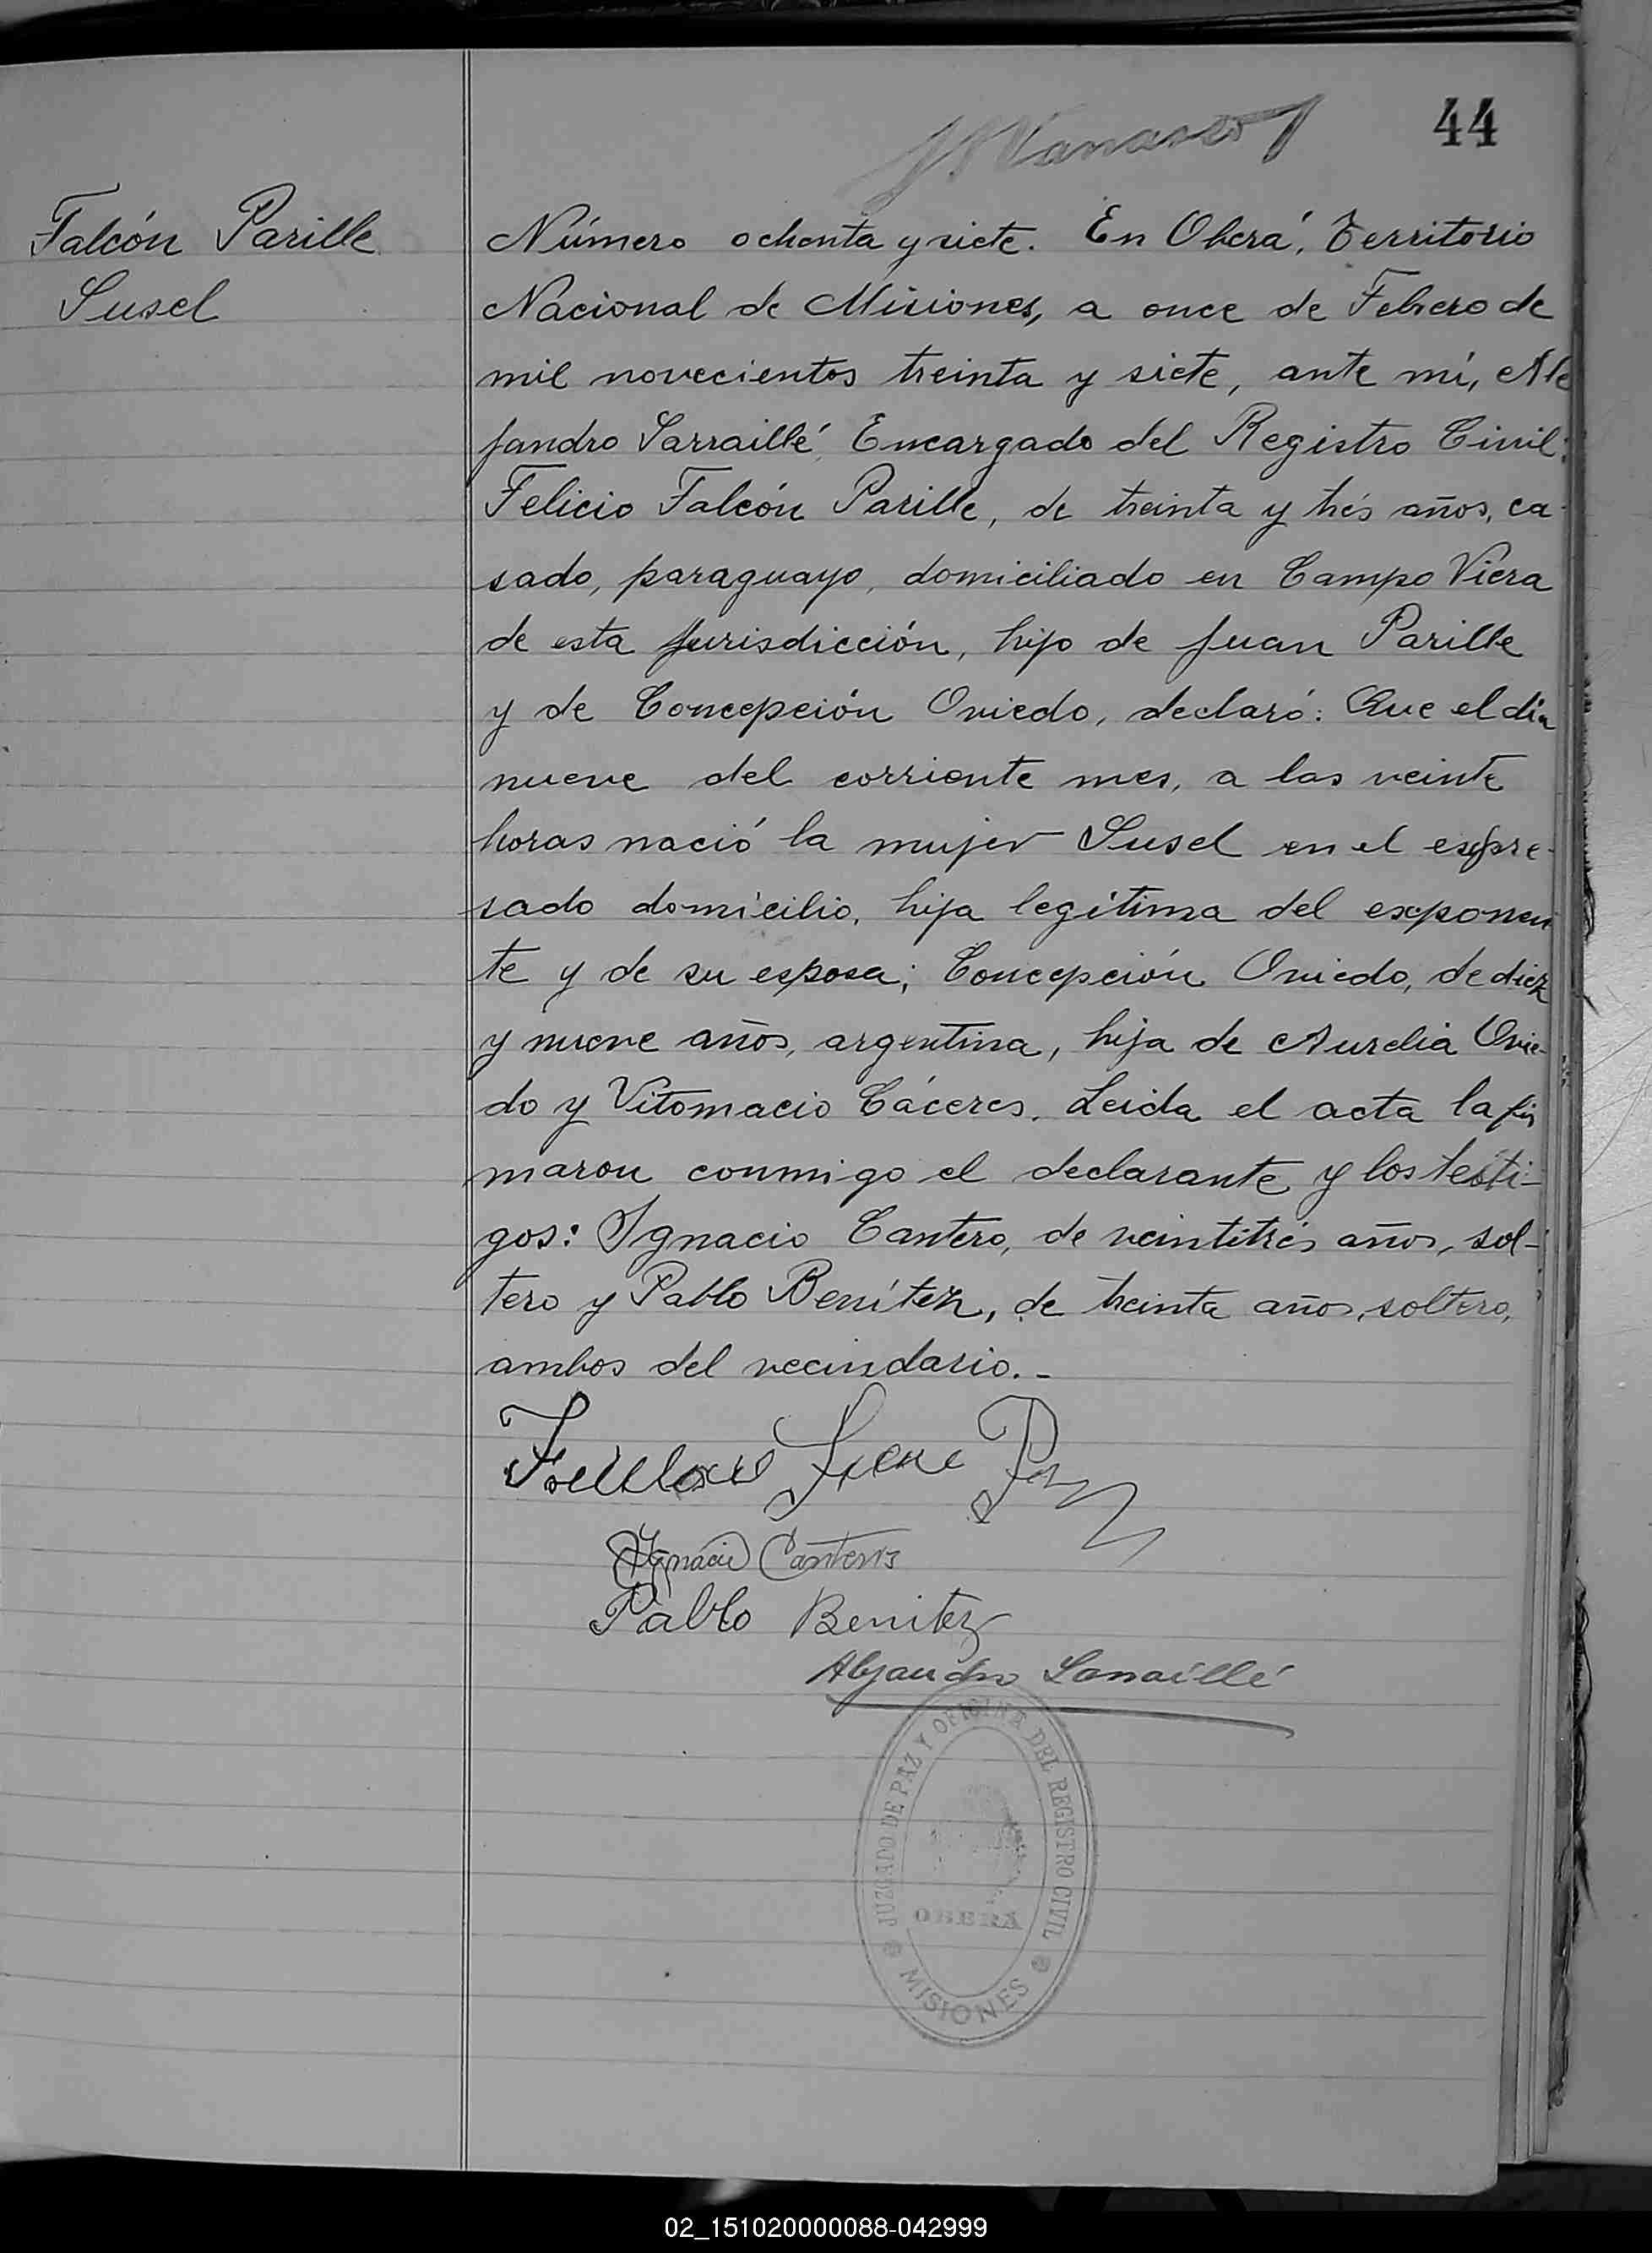 44
Falcón Parille
Susel
Número ochenta y siete. En Oberá, Territorio
Nacional de Misiones, a once de Febrero de
mil novecientos treinta y siete, ante mí, Ale
jandro Larraillé, Encargado del Registro Civil:
Felicio Falcón Parille, de treinta y trés años, ca-
sado, paraguayo, domiciliado en Campo Viera
de esta jurisdicción, hijo de Juan Parille
y de Concepción Oviedo, declaró: Que el día
nueve del corriente mes, a las veinte
horas nació la mujer Susel en el expre-
sado domicilio, hija legítima del exponen
te y de su esposa; Concepción Oviedo, de diez
y nueve años, argentina, hija de Aurelia Ovie-
do y Vitomacio Cáceres. Leida el acta la fir
maron conmigo el declarante y los testi-
gos: Ignacio Cantero, de veintitrés años, sol-
tero y Pablo Benítez, de treinta años, soltero,
ambos del vecindario.-
Ignacio Cantero
Pablo Benitez
Alejandro Larraillé
JUZGADO DE PAZ Y OFICINA DEL REGISTRO CIVIL
OBERÁ
MISIONES
02_151020000088-042999